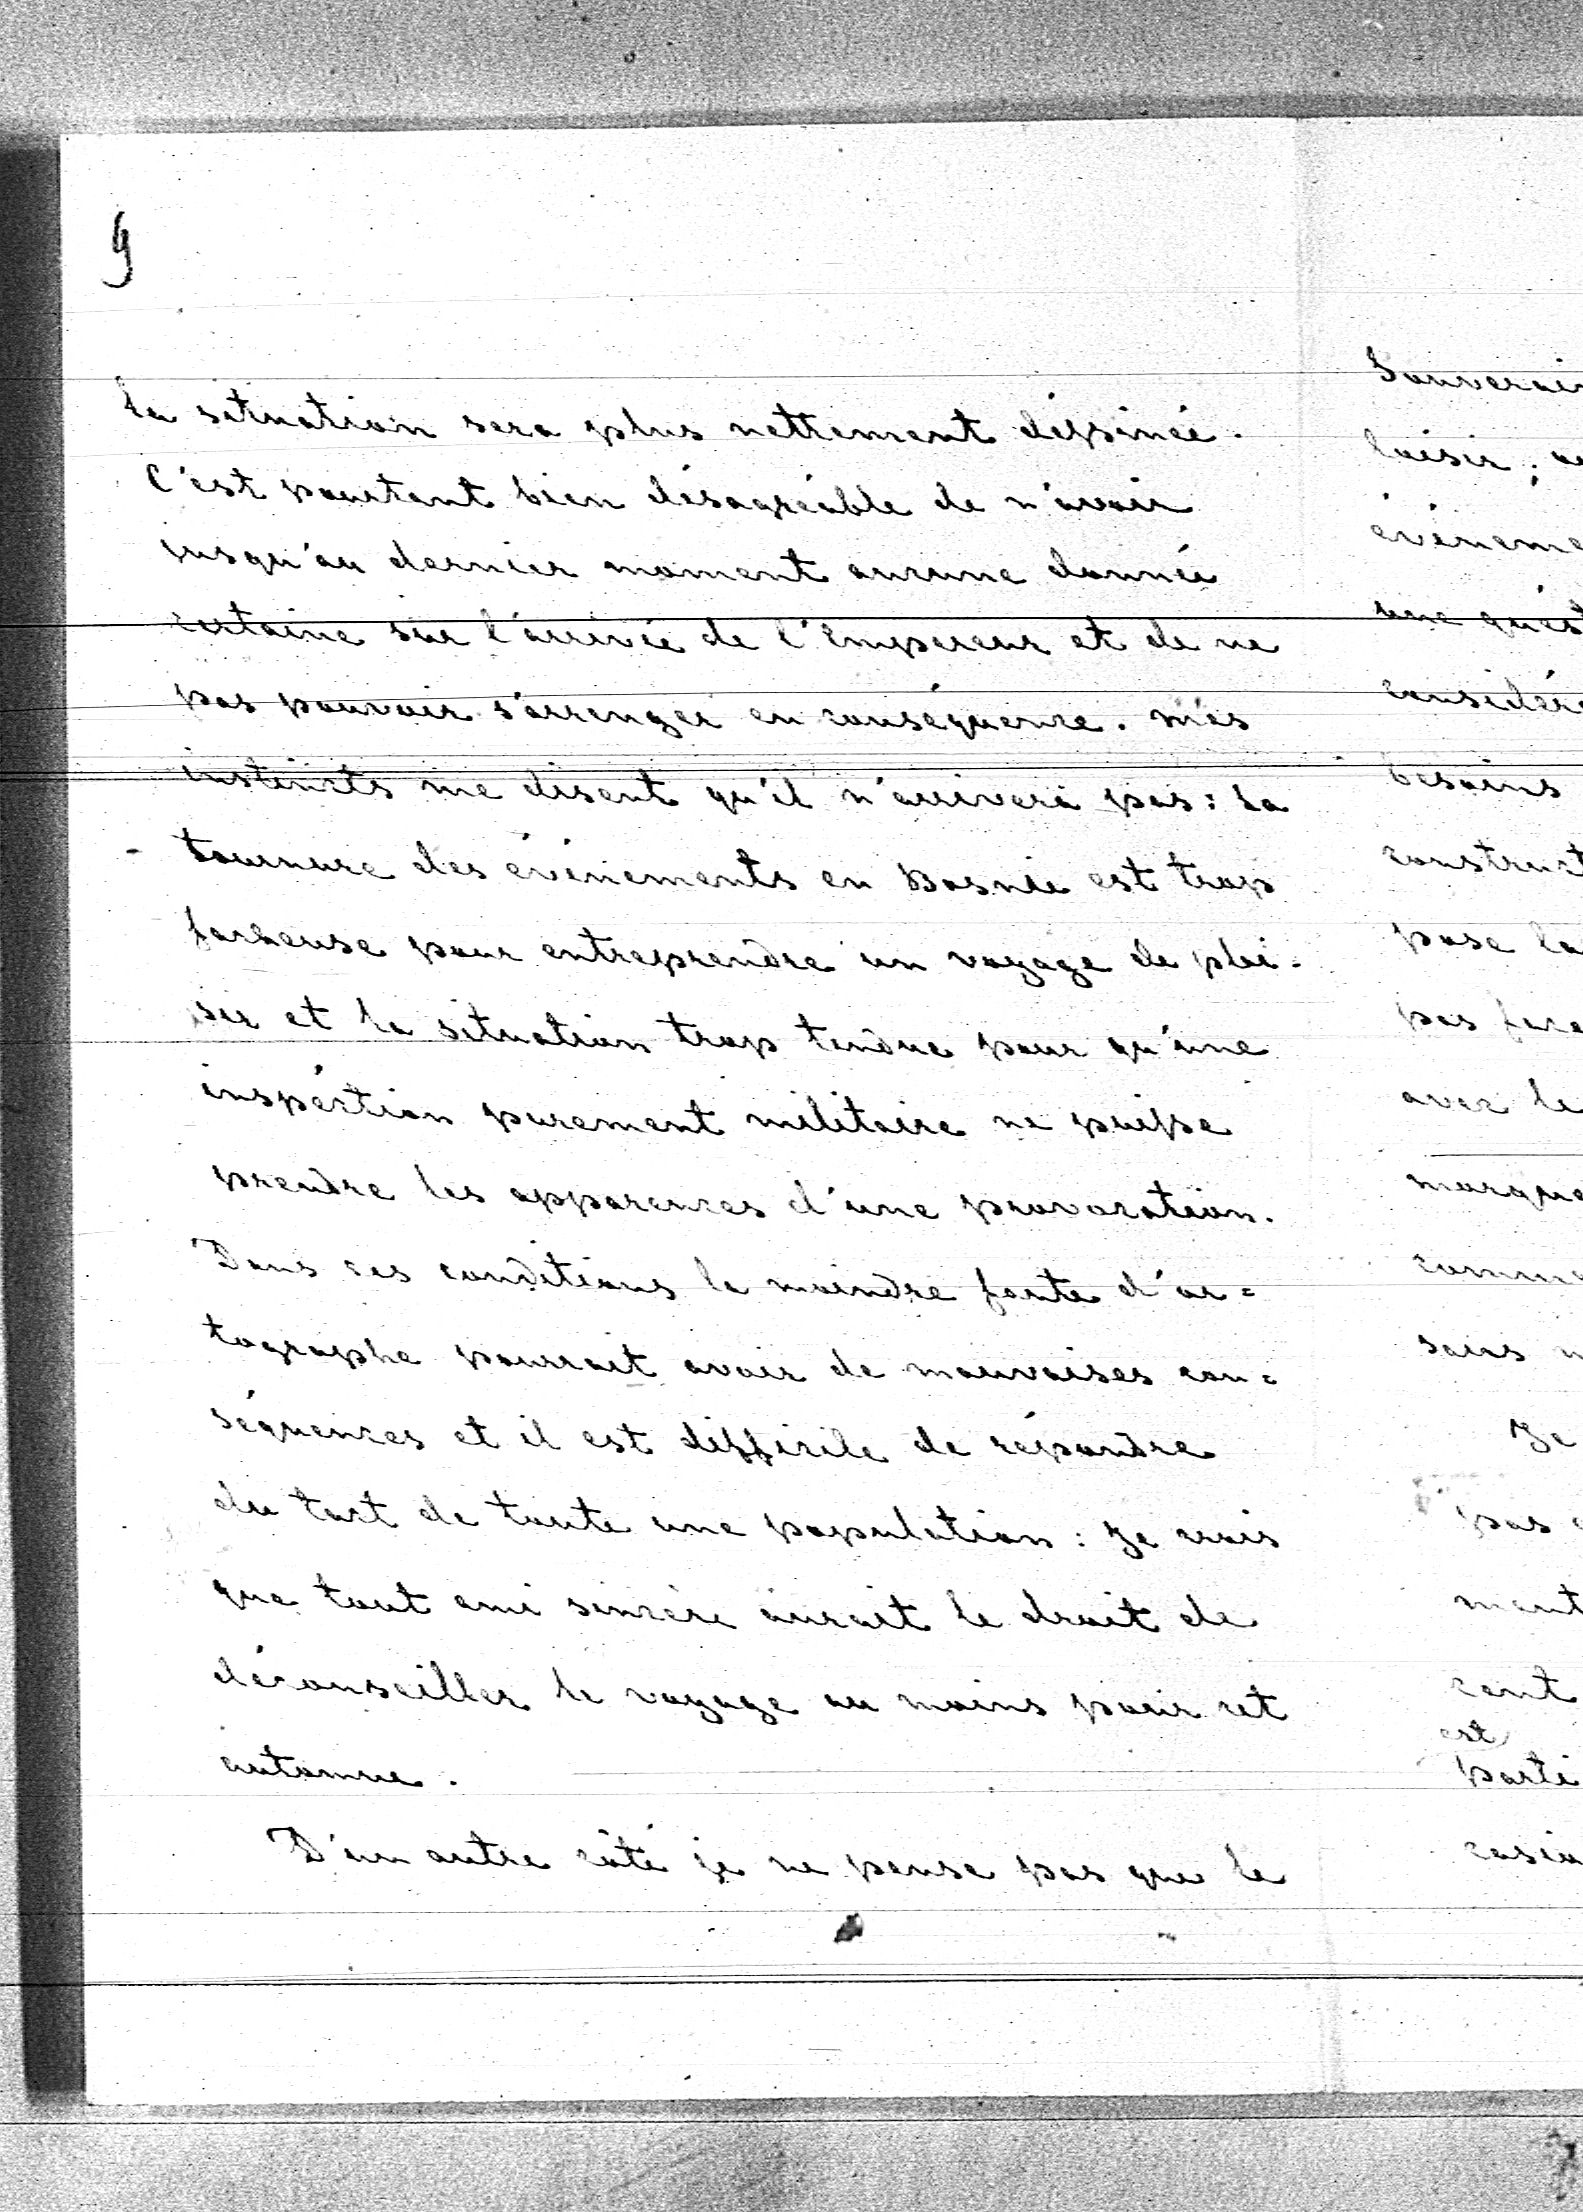 9
la situation sera plus nettement dessinée.
C'est pourtant bien désagréable de n'avoir
jusqu'au dernier moment aucune donnée
certaine sur l'arrivée de l'Empereur et de ne
pas pouvoir s'arranger en conséquence. Mes
instincts me disent qu'il n'arrivera pas: la
tournure des événements en Bosnie est trop
facheuse pour entreprendre un voyage de plai-
sir et la situation trop tendue pour qu'une
inspéction purement militaire ne puisse
prendre les apparences d'une provocation.
Dans ces conditions la moindre faute d'or=
tographe pourrait avoir de mauvaises con=
séquences et il est difficile de répondre
du tact de toute une population: Je crois
que tout ami sincère aurait le droit de
déconseiller le voyage au moins pour cet
automne.
D'un autre côté je ne pense pas que le
Souverain
loisir;
événeme
une quest
considér
besoins
construct
pose la
pas fera
avec le
marqua
comme
sains
Je
pas
ment
cont
est
parti
casio